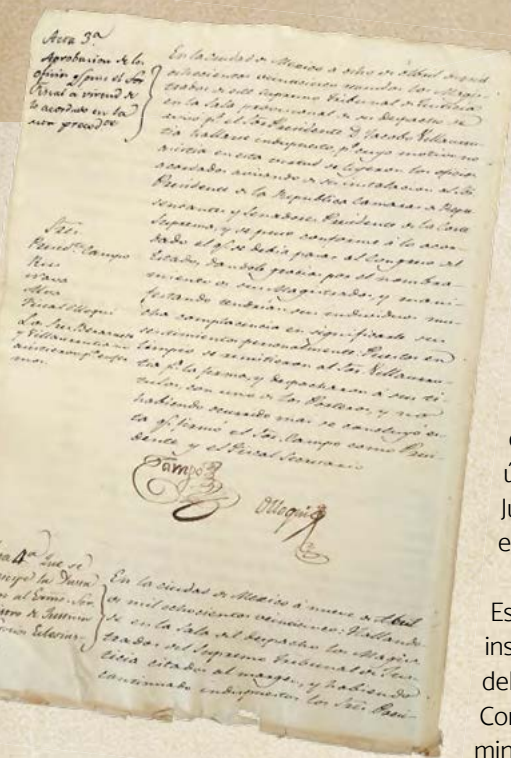 Acta 3ª
Aprobacion de los
oficios q. puso el Sor
Fiscal a virtud de
lo acordado en la
acta precedte
En la ciudad de Mexico à ocho de Abril de mil
ochocientos veinticinco reunidos los Magis-
trados de este Supremo Tribunal de Justicia
en la Sala provisional de su despacho, se
aviso pr el Sor Presidente D. Jacobo Villaurru-
tia hallarse indispuesto, pr cuyo motivo no
asistia en esta virtud se leyeron los oficios
acordados avisando de su instalacion al Sor
Presidente de la Republica Camaras de Repre-
sentantes y Senadores, Presidente de la Corte
Suprema, y se puso conforme à lo acor-
dado el q. se debia pasar al Congreso del
Estado, dandole gracias por el nombra-
miento de sus Magistrados, y mani-
festando tendrian sus individuos mu-
cha complacencia en significarle sus
sentimientos personalmente. Puestos en
limpio se remitieron al Sor Villaurru-
tia pa la firma, y despacharon à sus ti-
tulos, con uno de los Porteros, y no
habiendo ocurrido mas se concluyó es-
ta q. firmó el Sor Campo como Presi-
dente y el Fiscal Secretario
Sres.
Presidte Campo
Ruz
Nava
Alva
Fiscal Olloqui
Los Sres.
y Villaurrutia no
asistieron pr enfer-
mos.
Campo
Olloqui
4ª Que se
la
al Exmo. Sor
de Justicia
En la ciudad de Mexico à nueve de Abril
de mil ochocientos veinticinco: Hallando-
se en la Sala del despacho los Magis-
trados del Supremo Tribunal de Jus-
ticia citados al margen, y habiendo
continuado indispuestos los Sres. Presi-
ú
Ju
e
Es
ins
del
Co
min